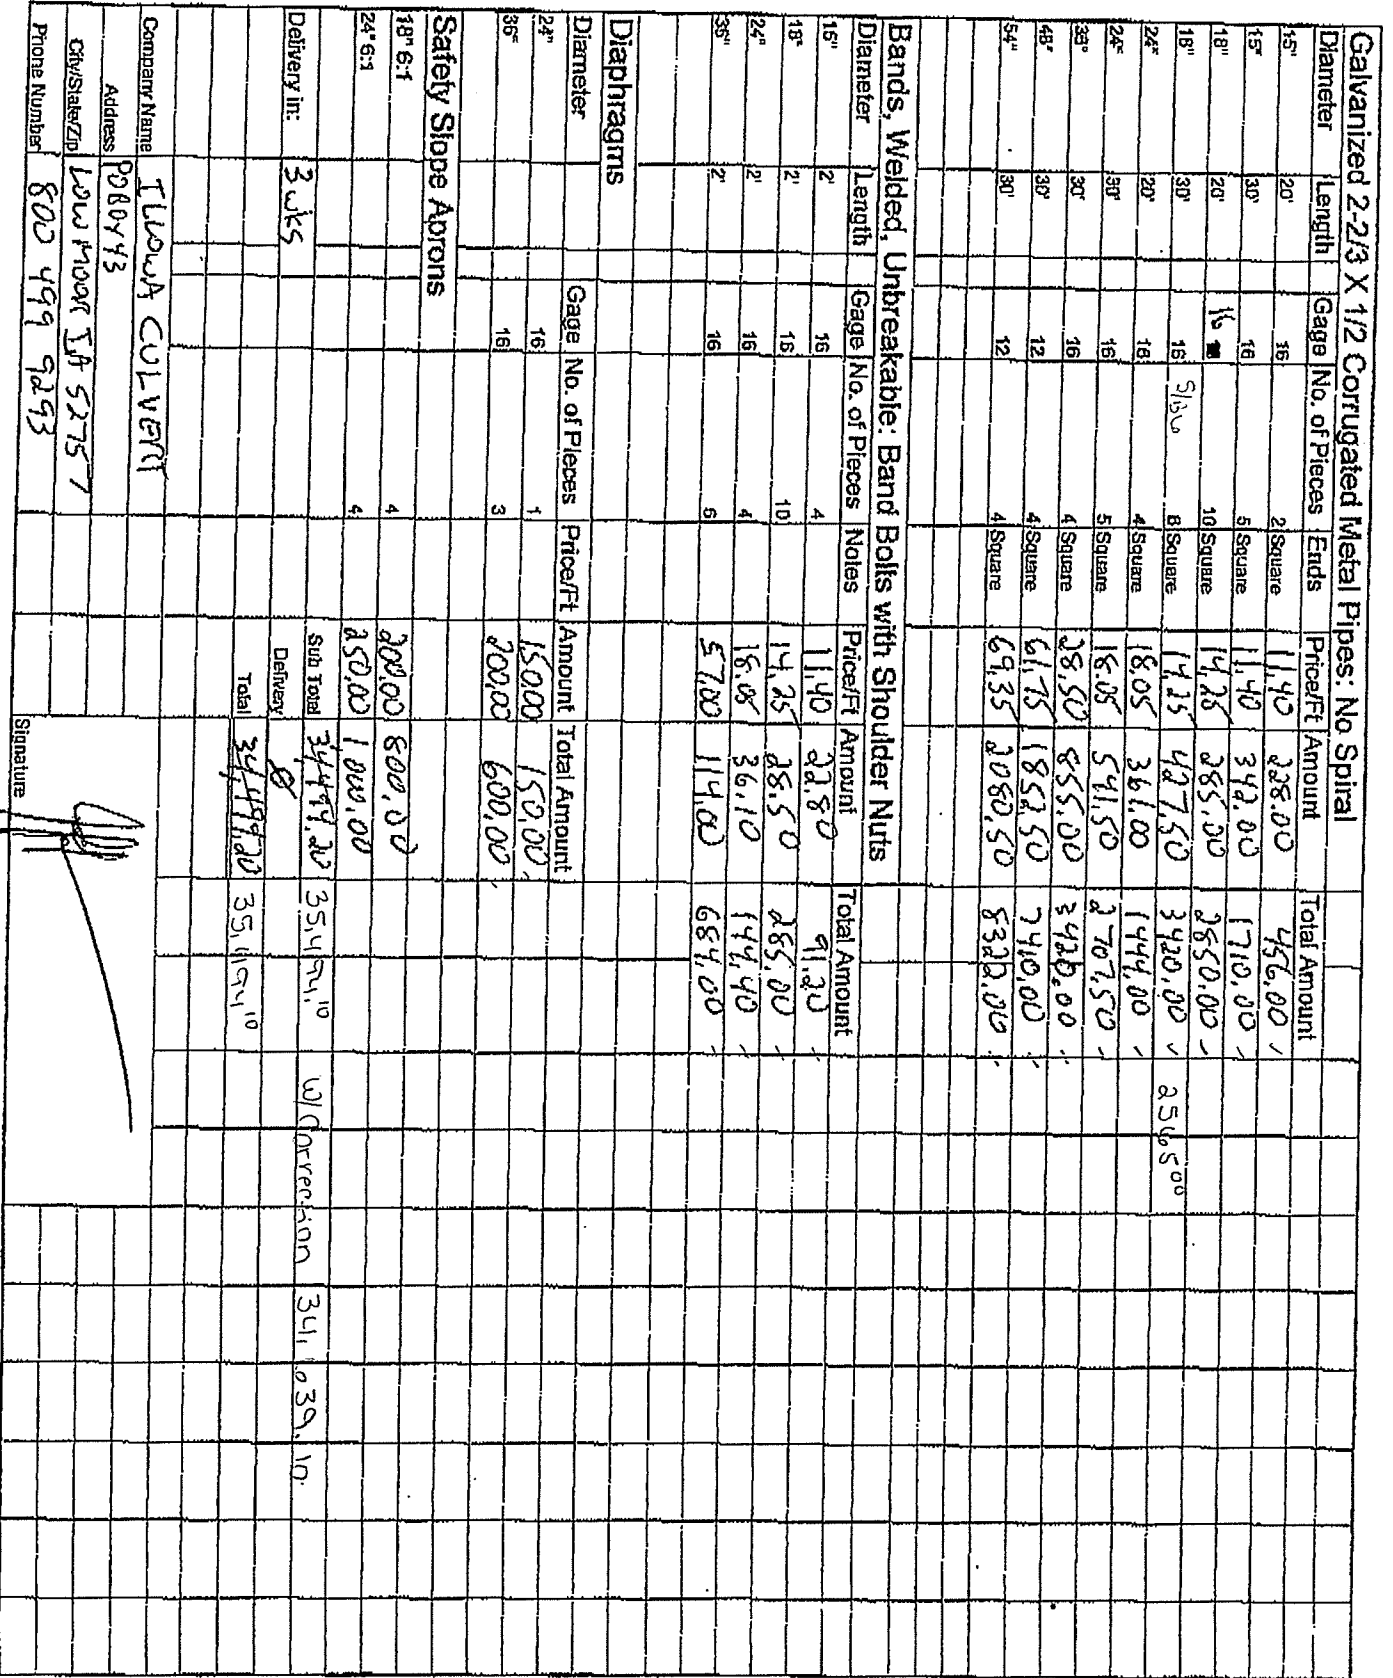 Galvanized 2-2/3 X 1/2 Corrugated Metal Pipes: No Spiral
Diameter Length Gage No. of Pieces Ends Price/Ft Amount Total Amount
15" 20' 16 2 Square 11,40 228.00 456,00
15" 30' 16 5 Square 11,40 342.00 1710,00
18" 20' 16 10 Square 14,25 285,00 2850.00
18" 30' 16 S/B 6 8 Square 14,25 427,50 3420,00 2565 00
24" 20' 16 4 Square 18,05 361.00 1444,00
24" 30' 16 5 Square 18.05 541,50 2707,50
36" 30' 16 4 Square 28,50 855,00 3420,00
48" 30' 12 4 Square 61,75 1852,50 7410,00
54" 30' 12 4 Square 69,35 2080,50 8322,00
Bands, Welded, Unbreakable: Band Bolts with Shoulder Nuts
Diameter Length Gage No. of Pieces Notes Price/Ft Amount Total Amount
15" 2' 16 4 11,40 22,80 91,20
18" 2' 16 10 14,25 28,50 285,00
24" 2' 16 4 18.05 36,10 144,40
36" 2' 16 6 57,00 114,00 684,00
Diaphragms
Diameter Gage No. of Pieces Price/Ft Amount Total Amount
24" 16 1 150.00 150,00
36" 16 3 200,00 600,00
Safety Slope Aprons
18" 6:1 4 200,00 800,00
24" 6:1 4 250,00 1000,00
Delivery in: 3 wks Sub Total 34,499,20 35,494,10 w/correction 34,639.10
Delivery Ø
Total 34,499,20 35,494,10
Company Name ILLOWA CULVERT
Address PO BOX 43
City/State/Zip LOW MOOR IA 52757
Phone Number 800 499 9293
Signature